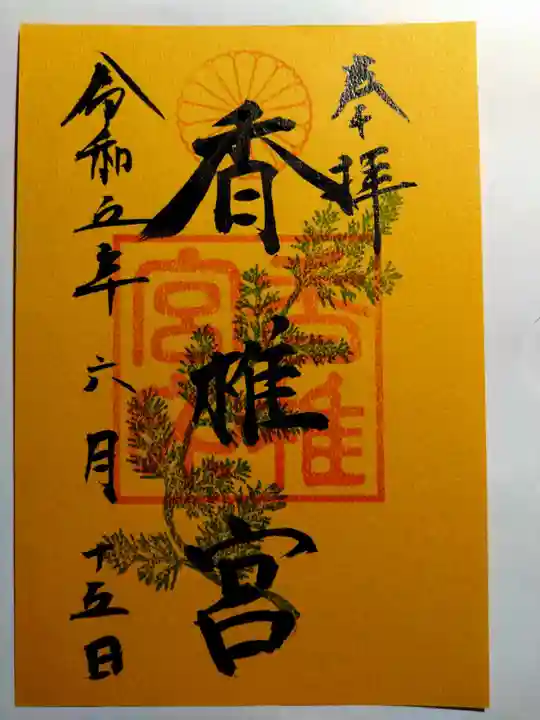 奉拝
香椎宮
令和五年六月十五日